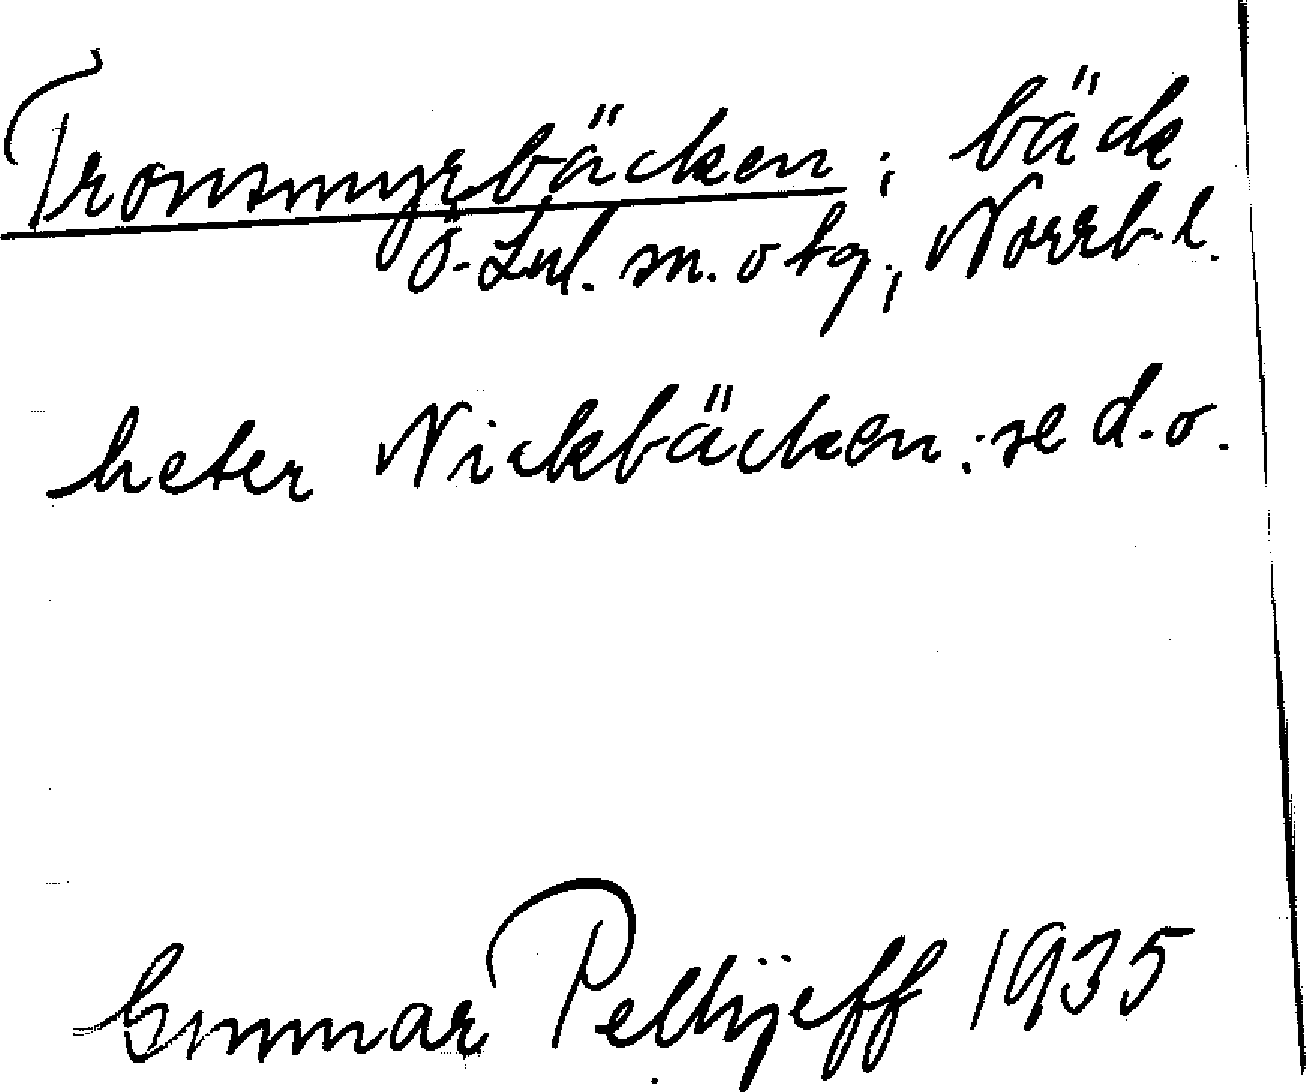 Tronsmyrbäcken; bäck
Ö.Lul. sn. o tg; Norrb.l.
heter Nickbäcken; se d.o.
Gunnar Pellijeff 1935